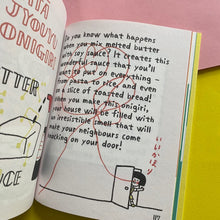 TTA
JYOUYU
ONIGIRI
TTER
CE
Do you know what happens
when you mix melted butter
with soy sauce? It creates this
wonderful sauce that you'll
want to put on everything –
from pasta to rice and even
on a slice of toasted bread!
When you make this onigiri,
your house will be filled with
an irresistible smell that will
make your neighbours come
knocking on your door!
いいかおり
117